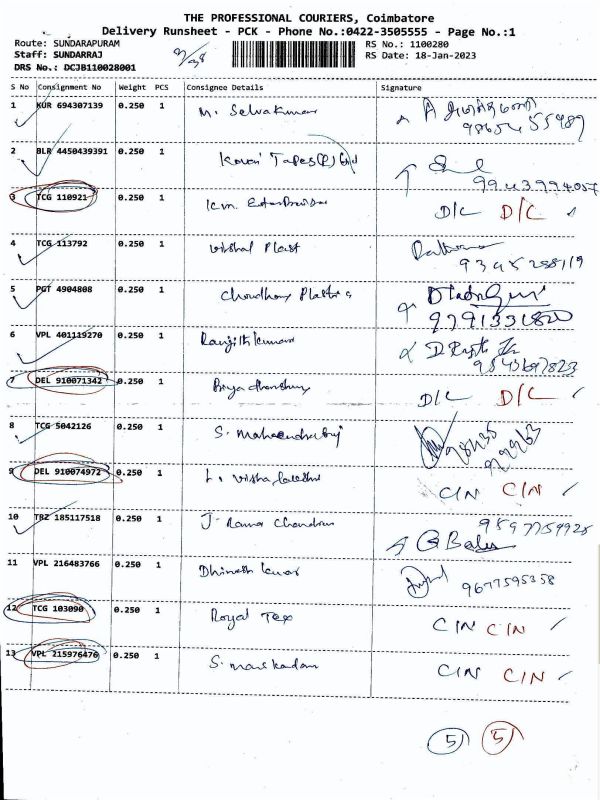 THE PROFESSIONAL COURIERS, Coimbatore
Delivery Runsheet - PCK - Phone No.:0422-3505555 - Page No.:1
Route: SUNDARAPURAM RS No.: 1100280
Staff: SUNDARRAJ RS Date: 18-Jan-2023
DRS No.: DCJB110028001
S No Consignment No Weight PCS Consignee Details Signature
1 KUR 694307139 0.250 1 M. Selvakumar
2 BLR 4450439391 0.250 1 Kovai Tapes(P) Ltd
3 TCG 110921 0.250 1 K.M. Enterprises D/C D/C
4 TCG 113792 0.250 1 Vishal Plast
5 PGT 4904808 0.250 1 Choudhary Plastics
9791331820
6 VPL 401119270 0.250 1 Ranjithkumar
9843697823
7 DEL 910071342 0.250 1 D/C D/C
8 TCG 5042126 0.250 1 S.
9 DEL 910074972 0.250 1 L. C/N C/N
10 TRZ 185117518 0.250 1 J. Rama Chandran 9597759925
11 VPL 216483766 0.250 1 Dhinesh kumar 9677595358
12 TCG 103090 0.250 1 Royal Tex C/N C/N
13 VPL 215976476 0.250 1 S. C/N C/N
5 5